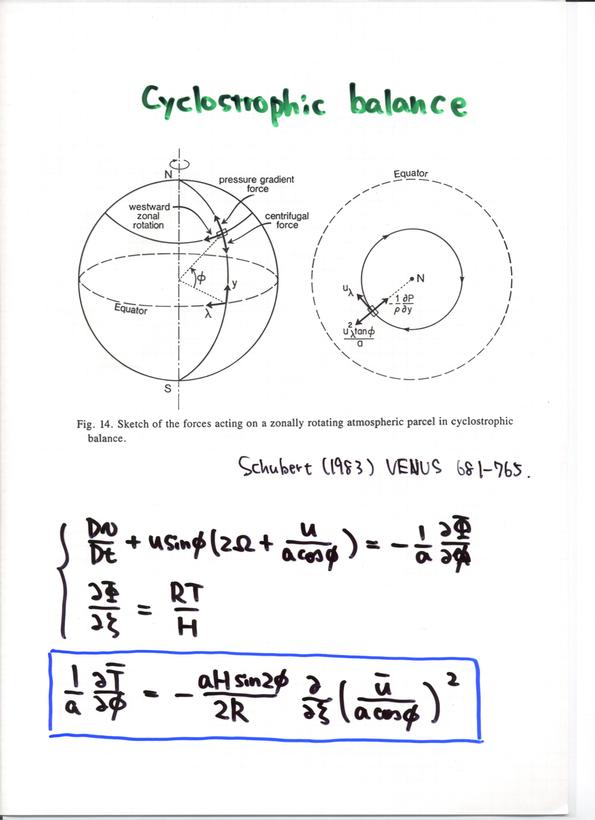 Cyclostrophic balance
N
pressure gradient
force
westward
zonal
rotation
centrifugal
force
ϕ
y
λ
Equator
S
Equator
N
u_λ
-1/ρ ∂P/∂y
u_λ² tanϕ / a
Fig. 14. Sketch of the forces acting on a zonally rotating atmospheric parcel in cyclostrophic
balance.
Schubert (1983) VENUS 681-765.
Dv/Dt + u sinϕ (2Ω + u/(a cosϕ)) = - 1/a ∂Φ/∂ϕ
∂Φ/∂ξ = RT/H
1/a ∂T̄/∂ϕ = - aH sin2ϕ/2R ∂/∂ξ (ū/(a cosϕ))²